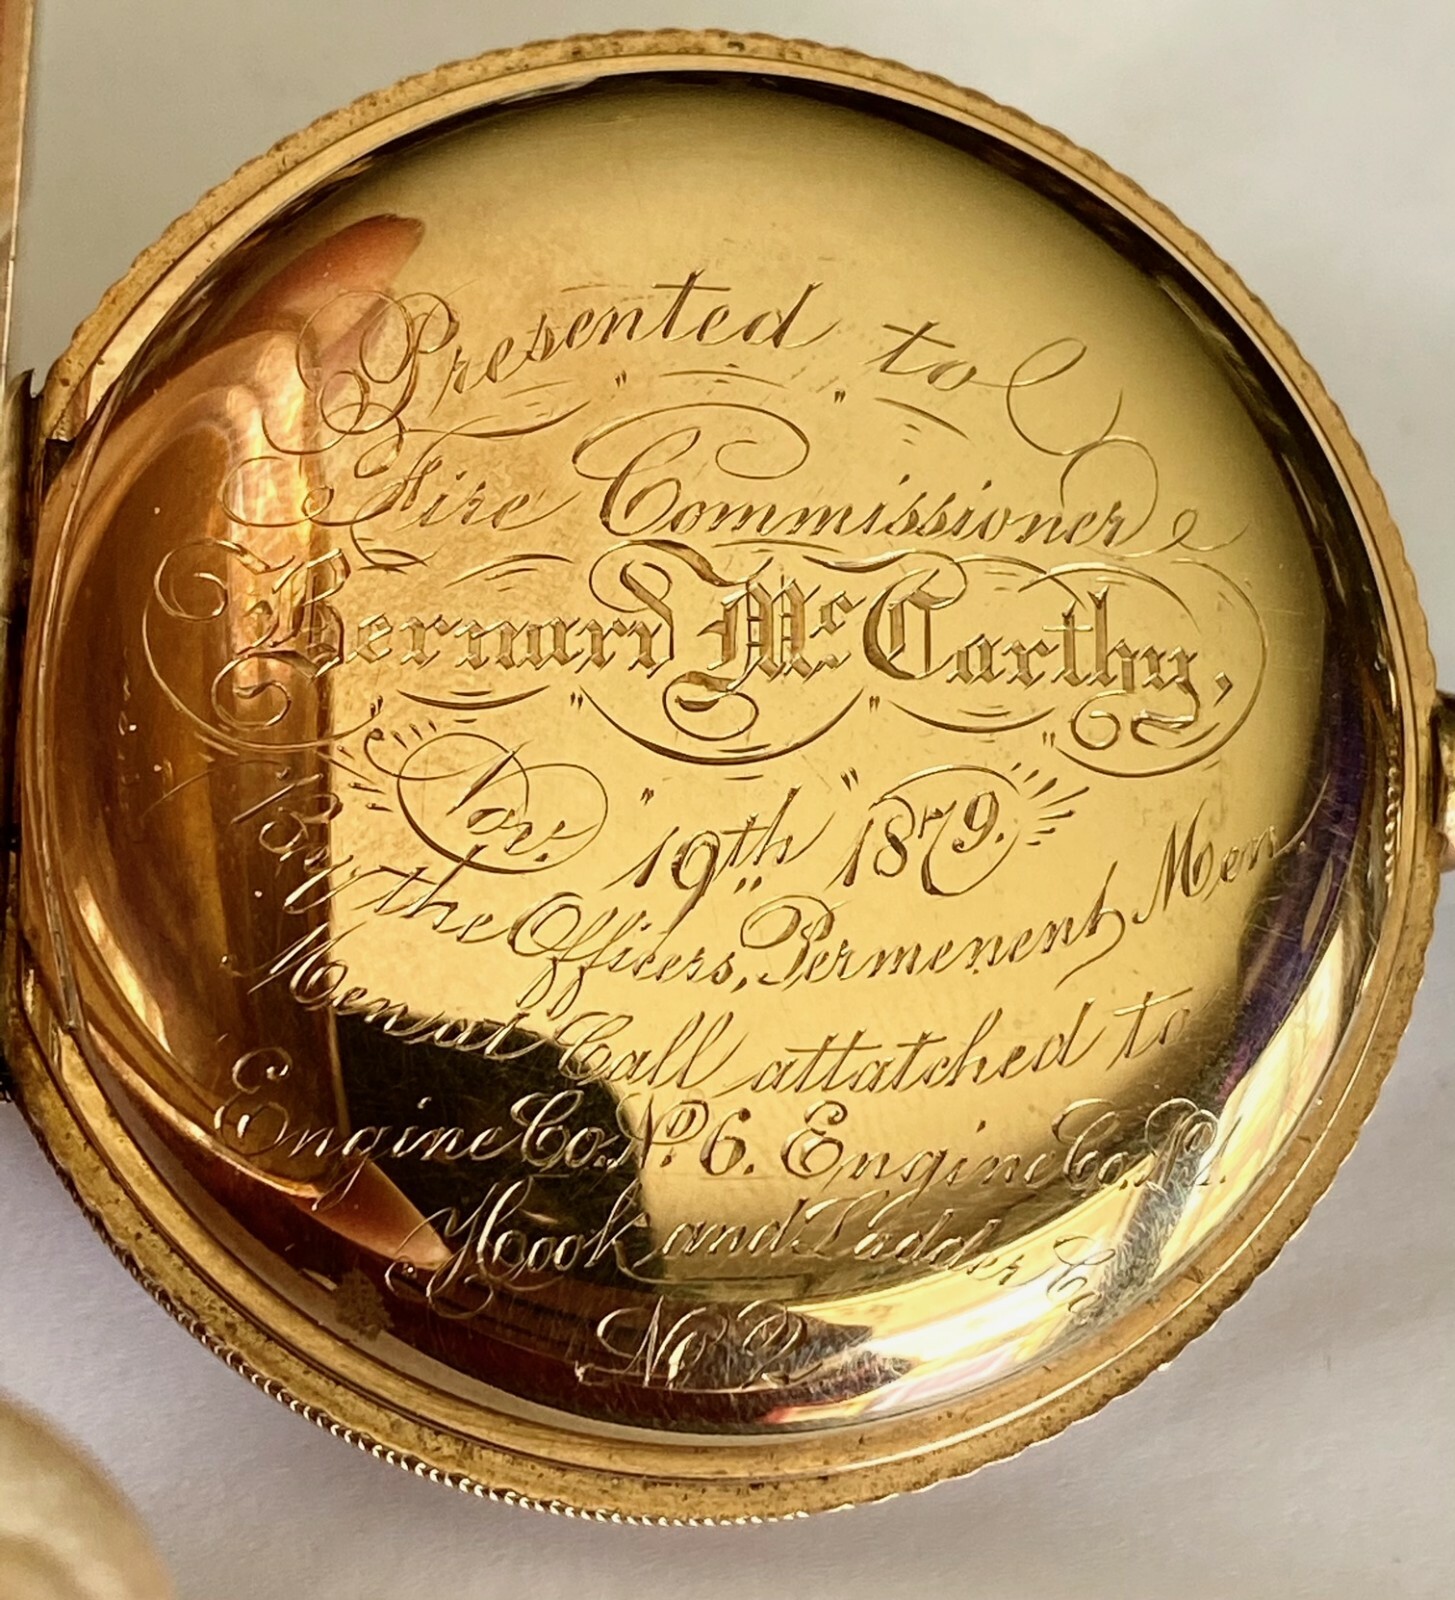 Presented to
Fire Commissioner
Bernard McCarthy,
Nov. 19th 1879.
By the Officers, Permenent Men
Men at Call attatched to
Engine Co. No 6. Engine Co. No 1.
Hook and Ladder Co
No 2